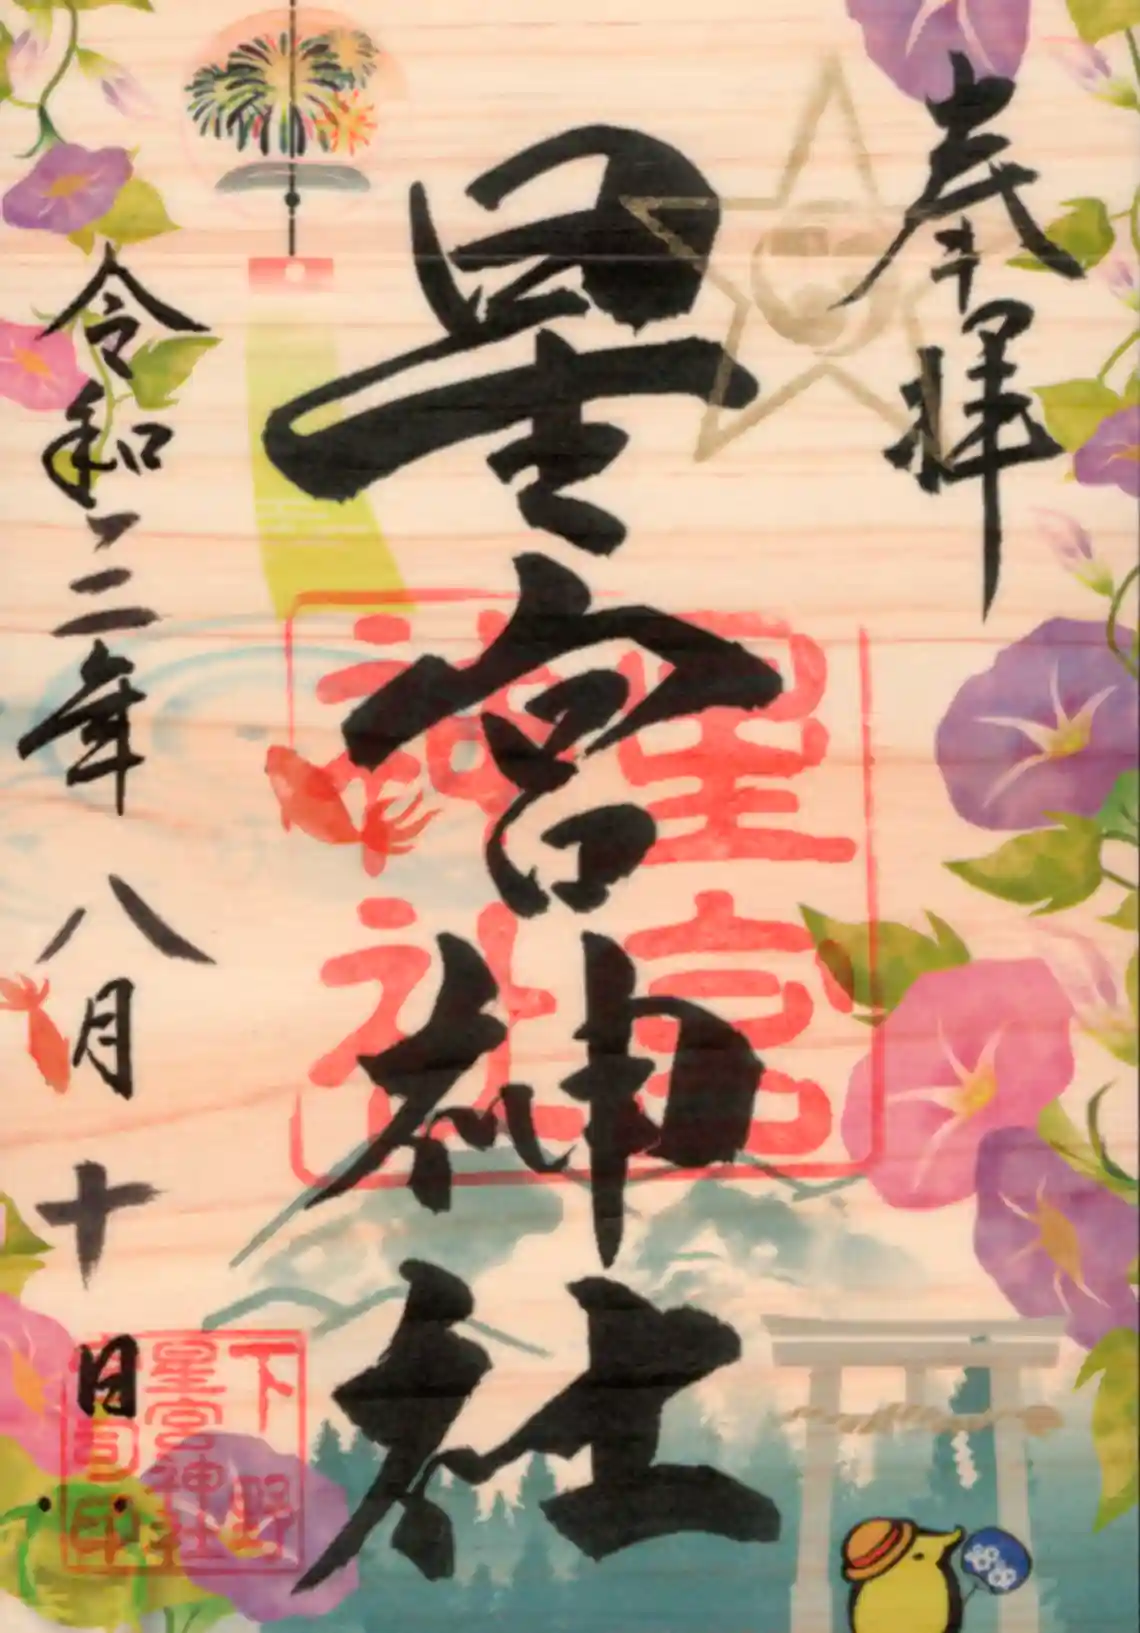 奉拝
星宮神社
星宮
神社
令和二年八月十日
下野
星宮神社
司印